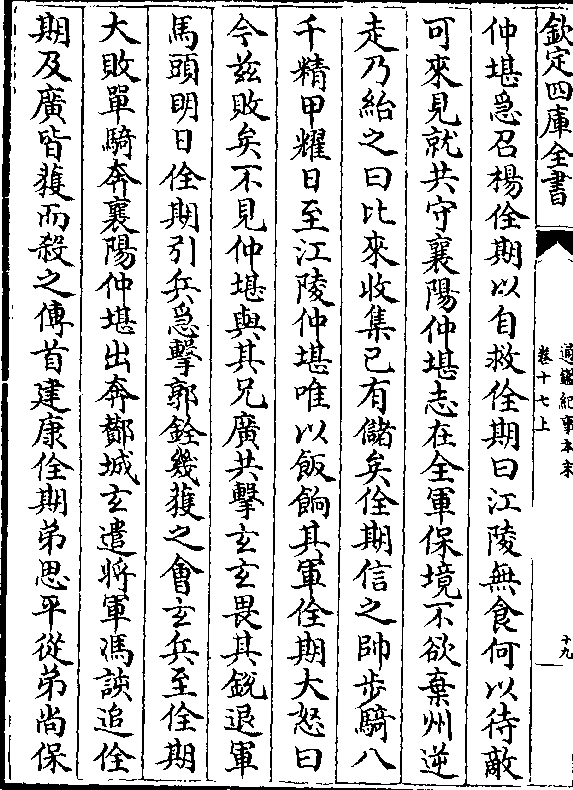 欽定四庫全書
通鑑紀事本末
卷十七上
十九
仲堪急召楊佺期以自救佺期曰江陵無食何以待敵
可來見就共守襄陽仲堪志在全軍保境不欲棄州逆
走乃紿之曰比來收集已有儲矣佺期信之帥步騎八
千精甲耀日至江陵仲堪唯以飯餉其軍佺期大怒曰
今兹敗矣不見仲堪與其兄廣共擊玄玄畏其銳退軍
馬頭明日佺期引兵急擊郭銓幾獲之會玄兵至佺期
大敗單騎奔襄陽仲堪出奔酇城玄遣將軍馮該追佺
期及廣皆獲而殺之傳首建康佺期弟思平從弟尚保